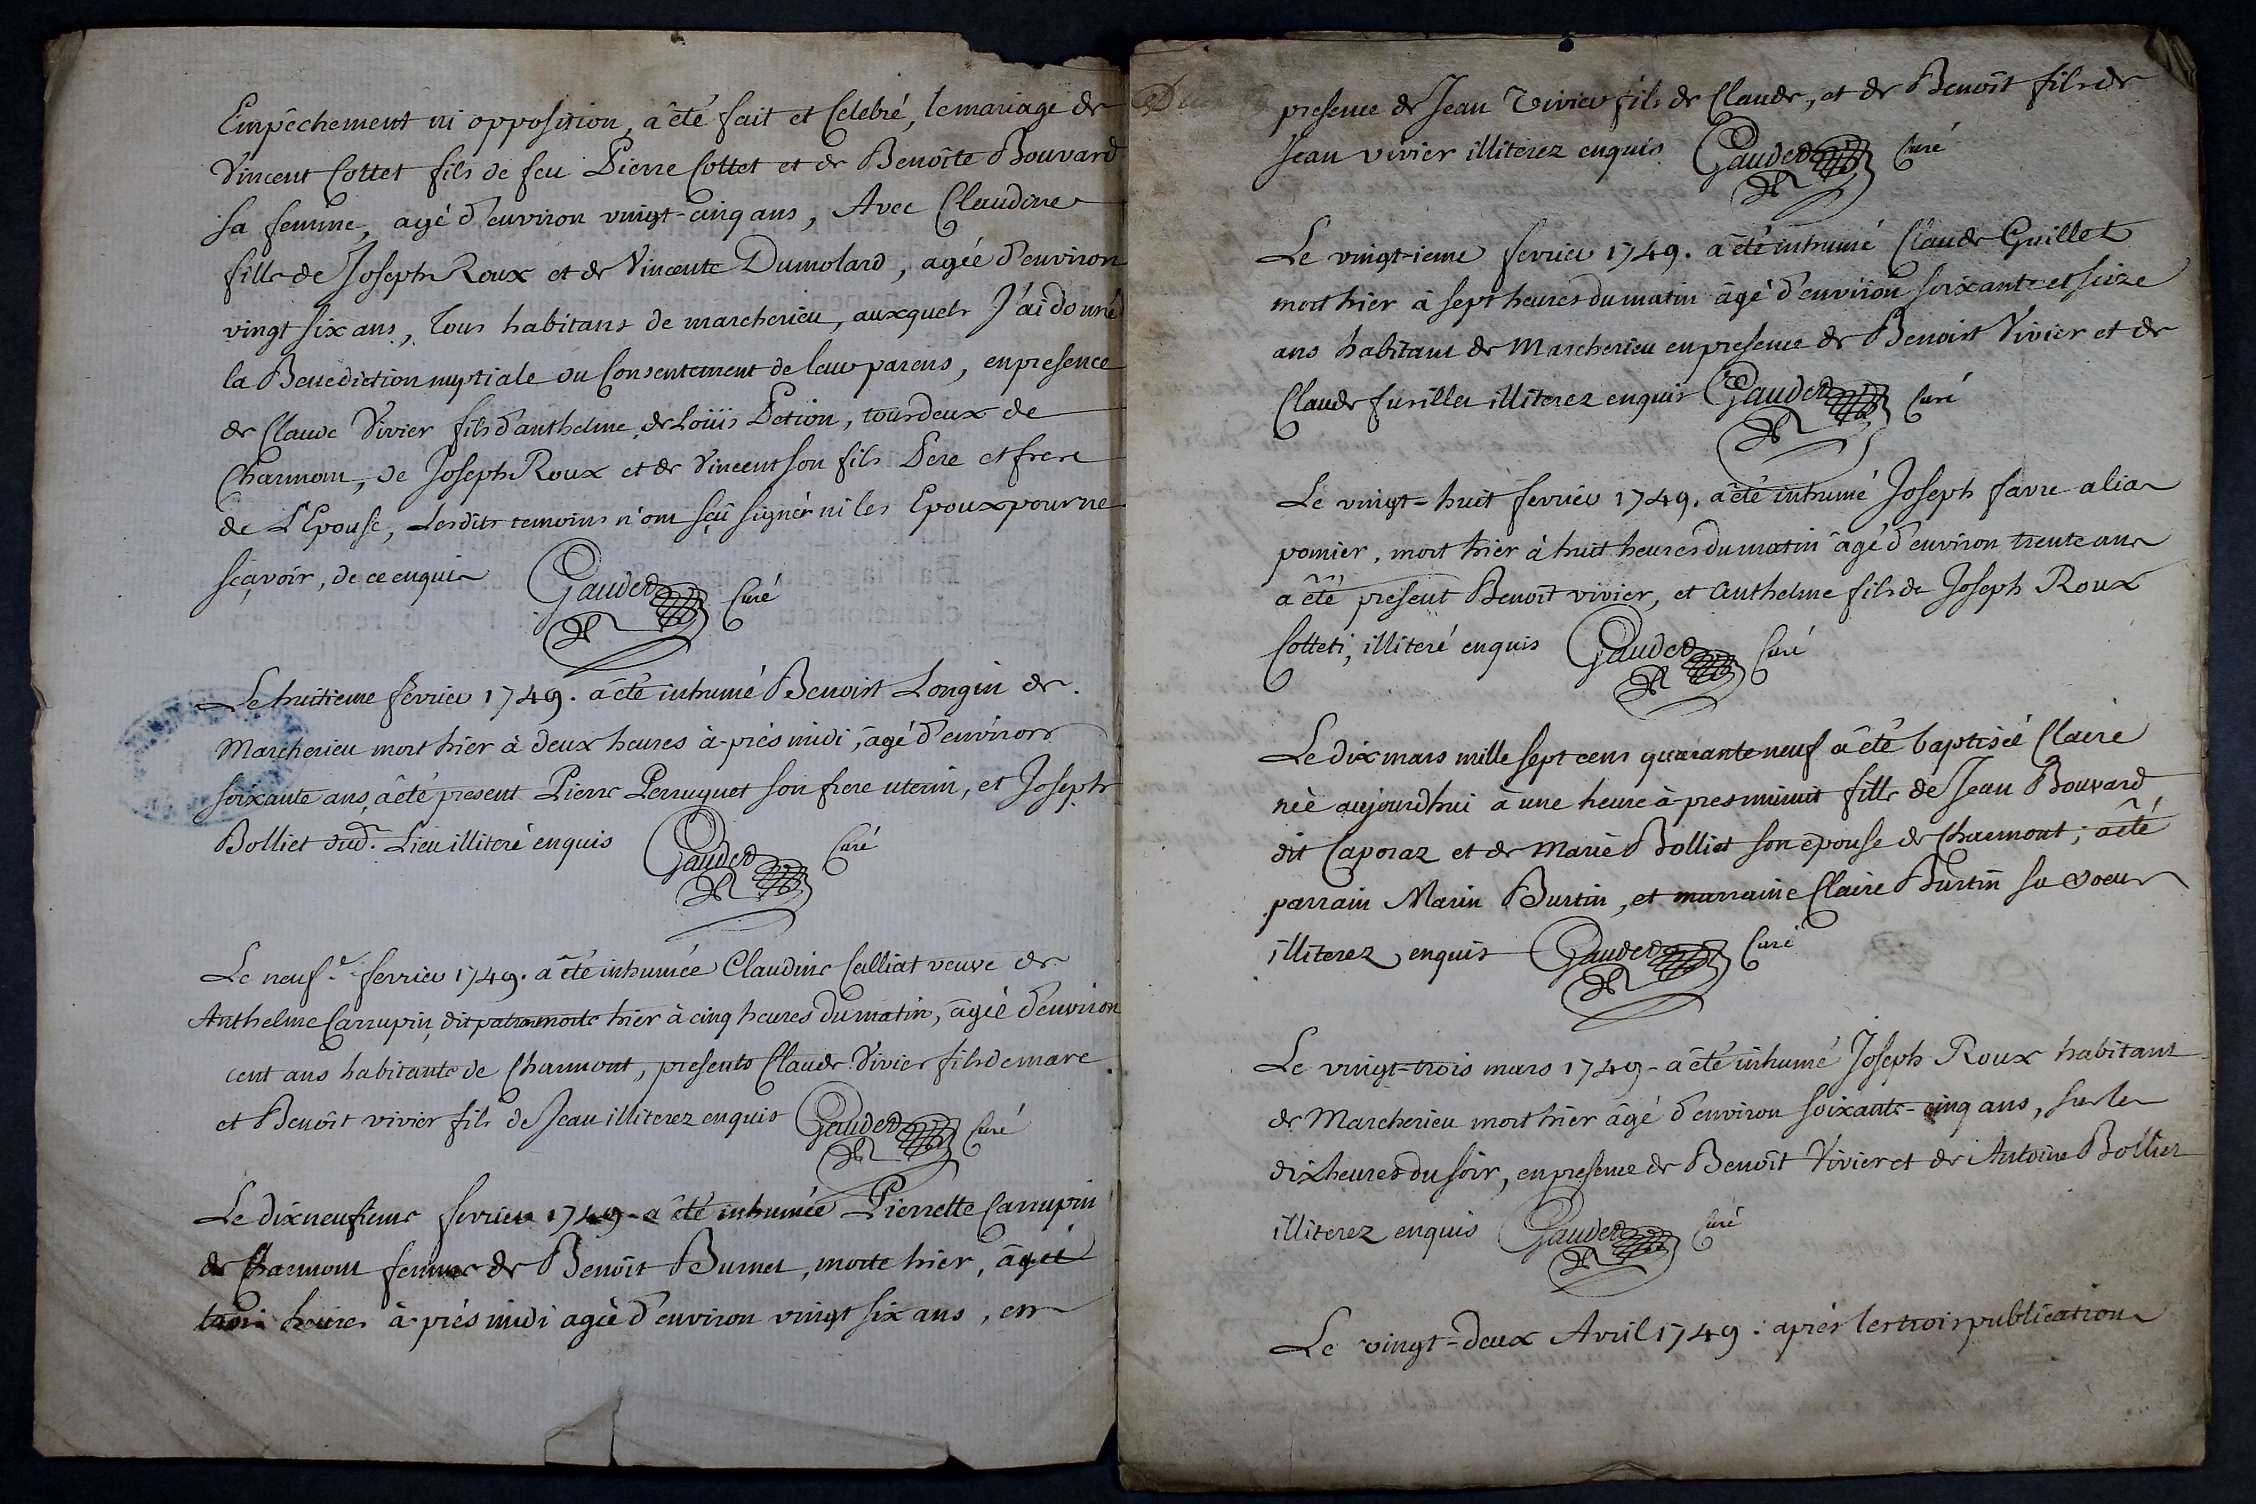 Empêchement ni opposition, a êté fait et Celebré, le mariage de
Vincent Cottet fils de feu Pierre Cottet et de Benoîte Bouvard
sa femme, agé d'environ vingt-cinq ans, Avec Claudine
fille de Joseph Roux et de Vincente Dumolard, agéé d'environ
vingt six ans, Tous habitans de marcherieu, auxquels J'ai donné
la Benediction nuptiale du Consentement de leur parens, en presence
de Claude Vivier fils d'anthelme, de Loüis Petion, tous deux de
Charmont, de Joseph Roux et de Vincent son fils Pere et frere
de L'Epouse, Lesdits temoins n'ont sçû signér ni les Epoux pour ne
sçavoir, de ce enquis Gaudet Curé
Le huitieme fevrier 1749. a êté inhumé Benoist Longin de
Marcherieu mort hier à deux heures à-prés midi, âgé d'environ
soixante ans, a êté present Pierre Perruquet son frere uterin, et Joseph
Bolliet dud. Lieu illiteré enquis Gaudet Curé
Le neuf.e fevrier 1749. a êté inhumée Claudine Calliat veuve de
Anthelme Carrupin, dit morte hier à cinq heures du matin, âgée d'environ
cent ans habitante de Charmont, presents Claude Vivier fils de marc
et Benoît vivier fils de Jean illiterez enquis Gaudet Curé
Le dixneufieme fevrier 1749. a êté inhumée Pierrette Carrupin
de Charmont femme de Benoît Burnet, morte hier, âgée
trois heures à-prés midi agée d'environ vingt six ans, en
presence de Jean Vivier fils de Claude, et de Benoît fils de
Jean vivier illiterez enquis Gaudet Curé
Le vingt-ieme fevrier 1749. a êté inhumé Claude Guillot
mort hier à sept heures du matin âgé d'environ soixante et seize
ans habitant de Marcherieu en presence de Benoist Vivier et de
Claude fusillet illiterez enquis Gaudet Curé
Le vingt-huit fevrier 1749. a êté inhumé Joseph favre alias
pomier, mort hier à huit heures du matin âgé d'environ trente ans
a êté present Benoît vivier, et Anthelme fils de Joseph Roux
Cotteti, illiteré enquis Gaudet Curé
Le dix mars mille sept cens quarante neuf a êté baptisée Claire
née aujourdhui à une heure à-pres minuit fille de Jean Bouvard
dit Caporaz et de Marie Bolliet son epouse de Charmont; a êté
parrain Marin Burtin, et marraine Claire Burtin sa soeur
illiterez enquis Gaudet Curé
Le vingt-trois mars 1749 a êté inhumé Joseph Roux habitant
de Marcherieu mort hier âgé d'environ soixante-cinq ans, sur les
dix heures du soir, en presence de Benoît Vivier et de Antoine Bolliet
illiterez enquis Gaudet Curé
Le vingt-deux Avril 1749. aprés les trois publications